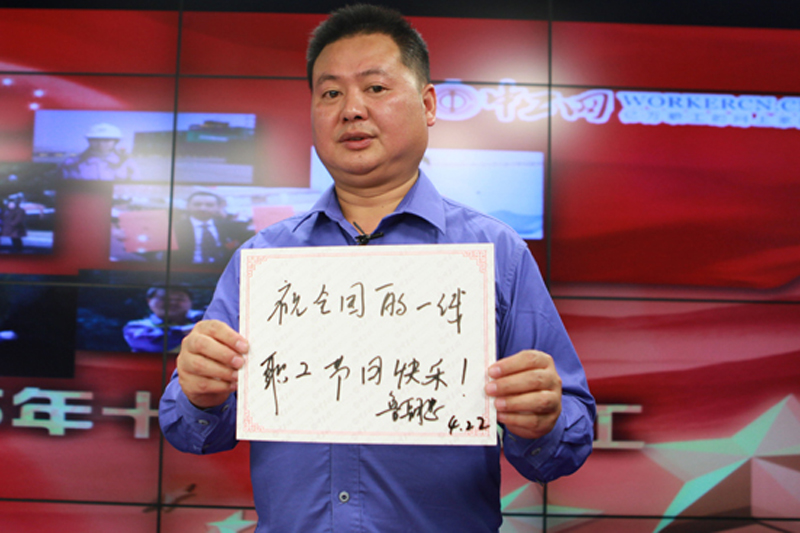 中工网
WORKERCN.C
年十
工
祝全国的一线
职工节日快乐!
4.22